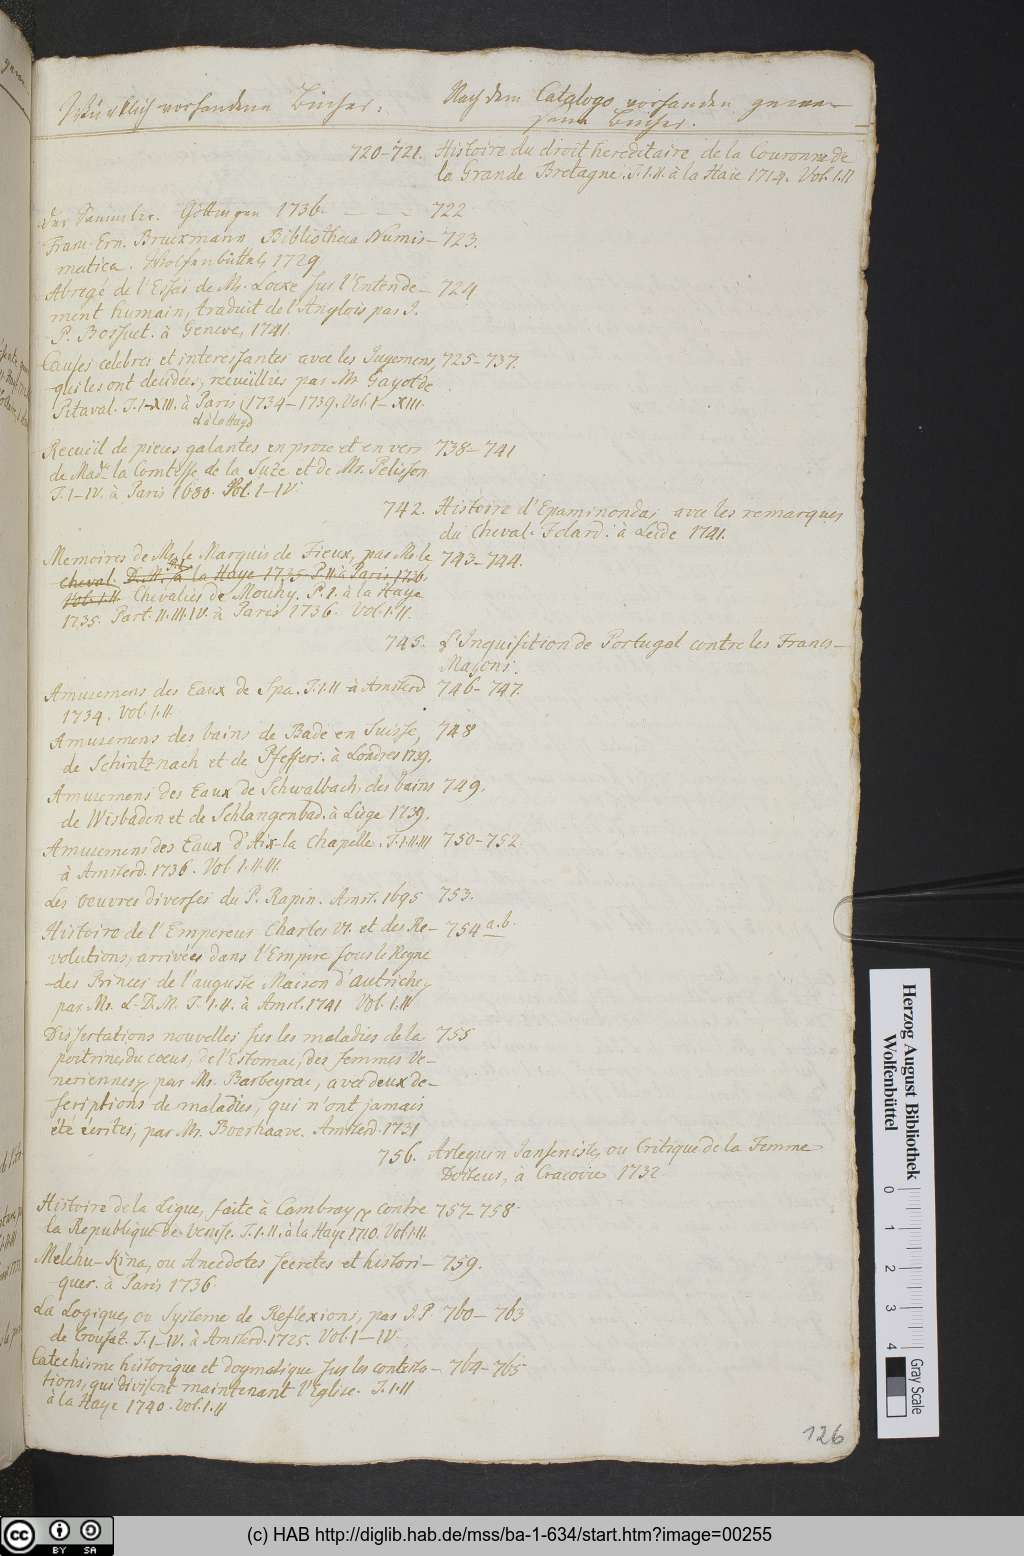 Würcklich vorhandene Bücher:
Nach dem Catalogo vorhanden gewe-
sene Bücher.
720-721. Histoire du droit hereditaire de la Couronne de
la Grande Bretagne. T. I. II. à la Haie 1714. Vol. I. II
Der Sammler. Göttingen 1736. - - - 722
Franc. Ern. Brucxmann, Bibliotheca Numis- 723.
matica. Wolfenbüttel, 1729
Abregé de l'Essai de Mr. Locke sur l'Entende- 724
ment humain, traduit de l'Anglois par J.
P. Bossuet. à Geneve, 1741.
Causes celebres et interessantes avec les Jugemens, 725-737.
qui les ont decidées, recueillies par Mr Gayot de
Pitaval. T. I-XIII. à Paris 1734-1739. Vol. I-XIII.
et à la Haye
Recueil de pieces galantes en prose et en vers 738-741
de Made la Comtesse de la Suze et de Mr. Pelisson
T. I-IV. à Paris 1680. Vol. I-IV.
742. Histoire d'Epaminondas avec les remarques
du Cheval. Folard. à Leide 1741.
Memoires de Mr. le Marquis de Fieux, par Mr le 743-744.
Cheval. D. M. à la Haye 1735 P. II à Paris 1736
Vol. I. II Chevalier de Mouhy. P. I. à la Haye
1735. Part. II. III. IV. à Paris 1736. Vol. I. II.
745. L'Inquisition de Portugal contre les Francs-
Maçons.
Amusemens des Eaux de Spa. T. I. II à Amsterd 746-747.
1734. Vol. I. II.
Amusemens des bains de Bade en Suisse, 748
de Schintznach et de Pfeffers. à Londres 1739.
Amusemens des Eaux de Schwalbach, des bains 749.
de Wisbaden et de Schlangenbad. à Liège 1739.
Amusemens des Eaux d'Aix-la Chapelle. T. I. II. III 750-752
à Amsterd. 1736. Vol I. II. III.
Les oeuvres diverses du P. Rapin. Amst. 1695 753.
Histoire de l'Empereur Charles VI. et des Re- 754 a. b.
volutions, arrivées dans l'Empire sous le Regne
des Princes de l'auguste Maison d'autriche,
par Mr. L. D. M. T. I. II. à Amst. 1741 Vol. I. II
Dissertations nouvelles sur les maladies de la 755
poitrine, du coeur, de l'Estomac, des femmes Ve-
neriennes, par Mr. Barbeyrac, avec deux de-
scriptions de maladies, qui n'ont jamais
été écrites, par Mr. Boerhaave. Amsterd. 1731
756. Arlequin Janseniste, ou Critique de la Femme
Docteur, à Cracovie 1732
Histoire de la Ligue, faite à Cambray, contre 757-758.
la Republique de Venise. T. I. II. à la Haye 1710. Vol I. II.
Melchu-Kina, ou Anecdotes secretes et histori- 759.
ques. à Paris 1736.
La Logique, ou Systeme de Reflexions, par J. P 760-763
de Crousat. T. I-IV. à Amsterd. 1725. Vol. I-IV.
Catechisme historique et dogmatique sur les contesta- 764-765
tions, qui divisent maintenant l'Eglise. T. I. II
à la Haye 1740. Vol. I. II
126
Herzog August Bibliothek
Wolfenbüttel
0 1 2 3 4
Gray Scale
cc BY SA
(c) HAB http://diglib.hab.de/mss/ba-1-634/start.htm?image=00255